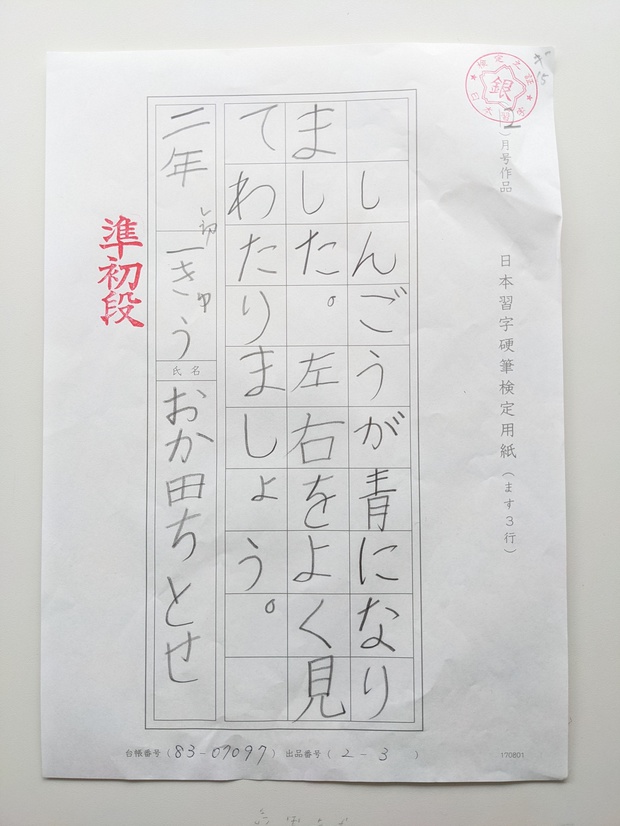 銀
2
月号作品
日本習字硬筆検定用紙（ます3行）
しんごうが青になり
ました。左右をよく見
てわたりましょう。
二年
一きゅう
氏名
おか田ちとせ
準初段
台帳番号（83-07097）出品番号（2-3）
170801